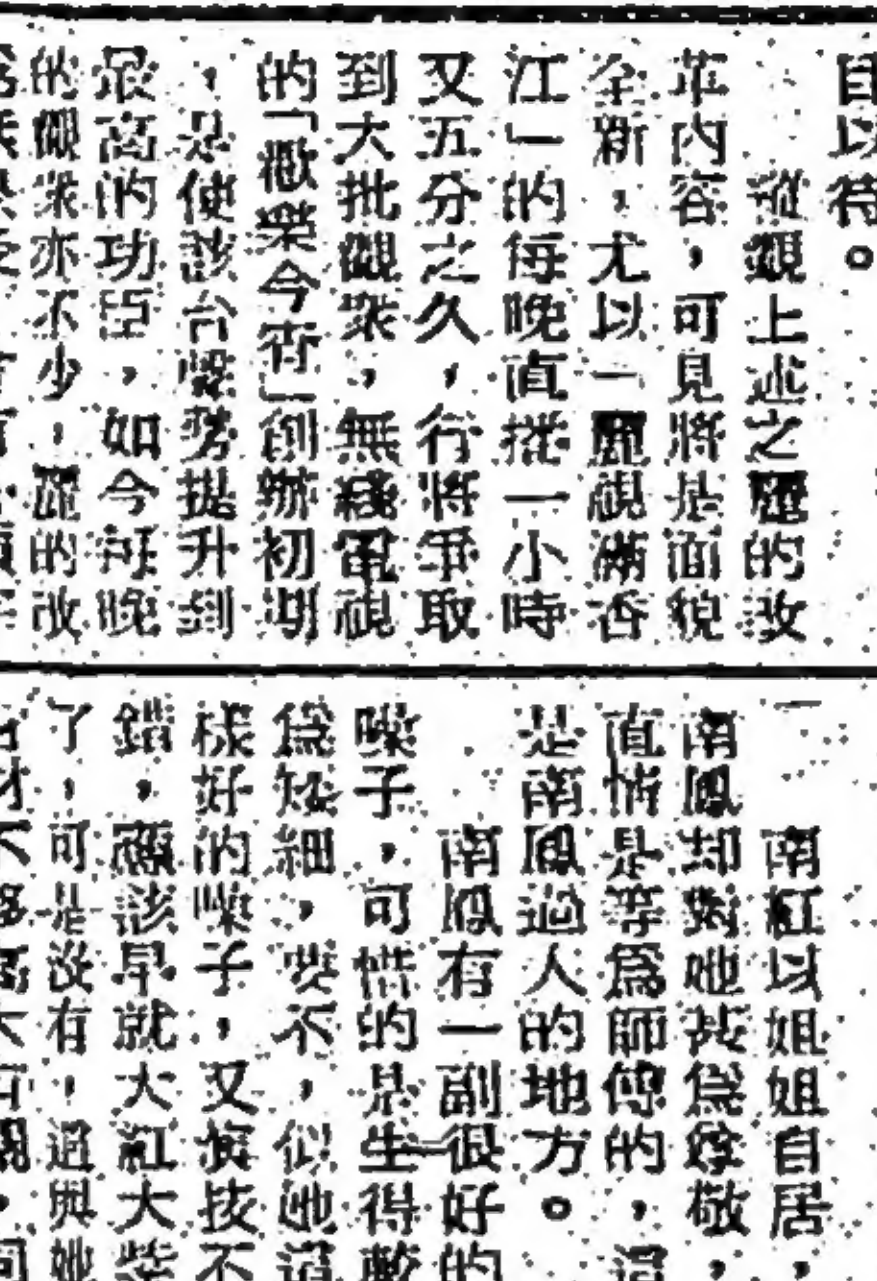 目以待。
縱觀上述之麗的改
革內容，可見將是面貌
全新，尤以一麗視滿香
江」的每晚直播一小時
又五分之久，行將爭取
到大批觀眾，無綫電視
的「歡樂今宵」創辦初期
，是使該台聲勢提升到
最高的功臣，如今每晚
的觀眾亦不少，麗的改
南紅以姐姐自居，
南鳳却對她甚為尊敬，
直情是等為師傅的，這
是南鳳過人的地方。
南鳳有一副很好的
嗓子，可惜的是生得較
為矮細，要不，似她這
樣好的嗓子，又演技不
錯，應該早就大紅大紫
了，可是沒有，過與她